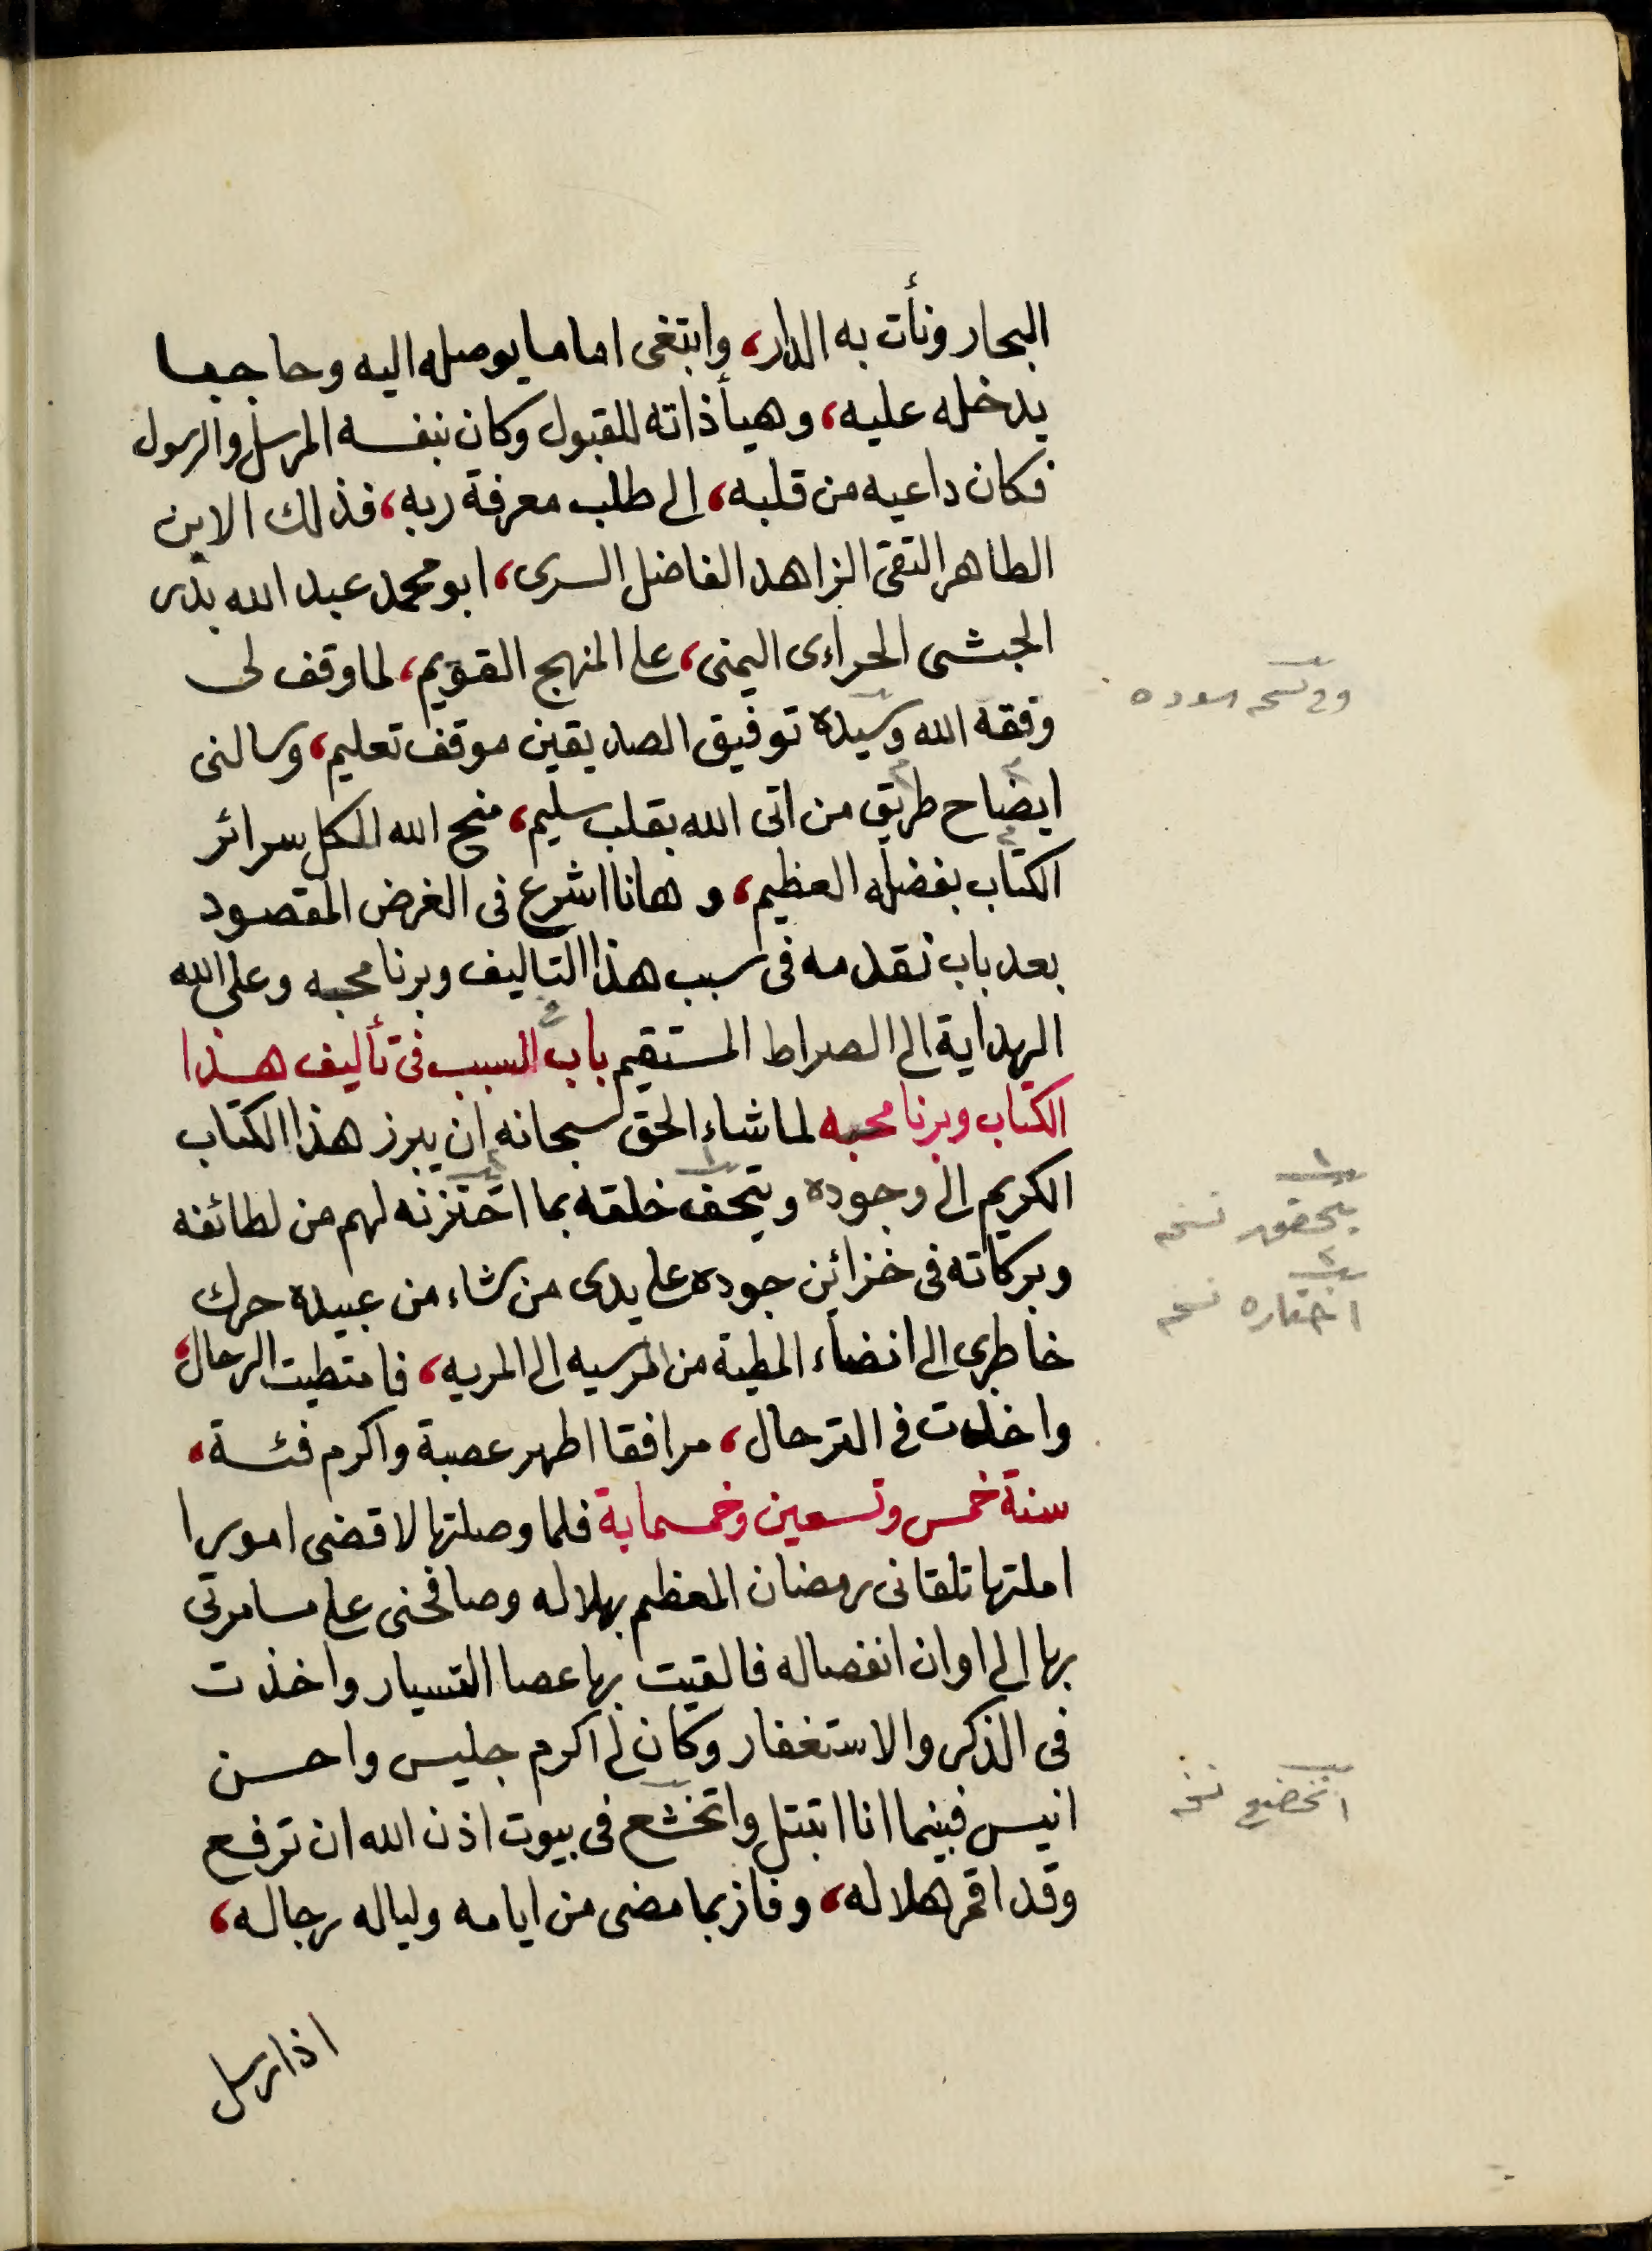 البحار ونأت به الدار، وابتغى اماما يوصله اليه وحاجبا
يدخله عليه، وهيأ ذاته للقبول وكان بنفسه المرسل والرسول
فكان داعيه من قلبه، الى طلب معرفة ربه، فذلك الابن
الطاهر التقى الزاهد الفاضل السرى، ابو محمد عبد الله بدر
الحبشى الحراءى اليمنى، على المنهج القويم، لما وقف لى
وفقه الله وسيده توفيق الصديقين موقف تعليم، وسالنى
ايضاح طريق من اتى الله بقلب سليم، منح الله الكل سرائر
الكتاب بفضله العظيم، وهانا اشرع فى الغرض المقصود
بعد باب نقدمه فى سبب هذا التاليف وبرنامجه وعلى الله
الهداية الى الصراط المستقيم باب السبب فى تأليف هذا
الكتاب وبرنامجه لما شاء الحق سبحانه ان يبرز هذا الكتاب
الكريم الى وجوده ويتحف خلقه بما اختزنه لهم من لطائفه
وبركاته فى خزائن جوده على يدى من شاء من عبيده حرك
خاطرى الى انضاء المطية من المرسيه الى المريه، فامتطيت الرحال،
واخذت فى الترحال، مرافقا اطهر عصبة واكرم فئة،
سنة خمس وتسعين وخمسماية فلما وصلتها لاقضى امورا
املتها تلقانى رمضان المعظم بهلاله وصافحنى على مسامرتى
بها الى اوان انفصاله فالقيت بها عصا التسيار واخذت
فى الذكر والاستغفار وكان لى اكرم جليس واحسن
انيس فبينما انا اتبتل واتخشع فى بيوت اذن الله ان ترفع
وقد اقمر هلاله، وفاز بما مضى من ايامه ولياله رجاله،
اذ ارسل
وفى نسخه
نسخه
اختاره نسخه
اتخضع نسخه